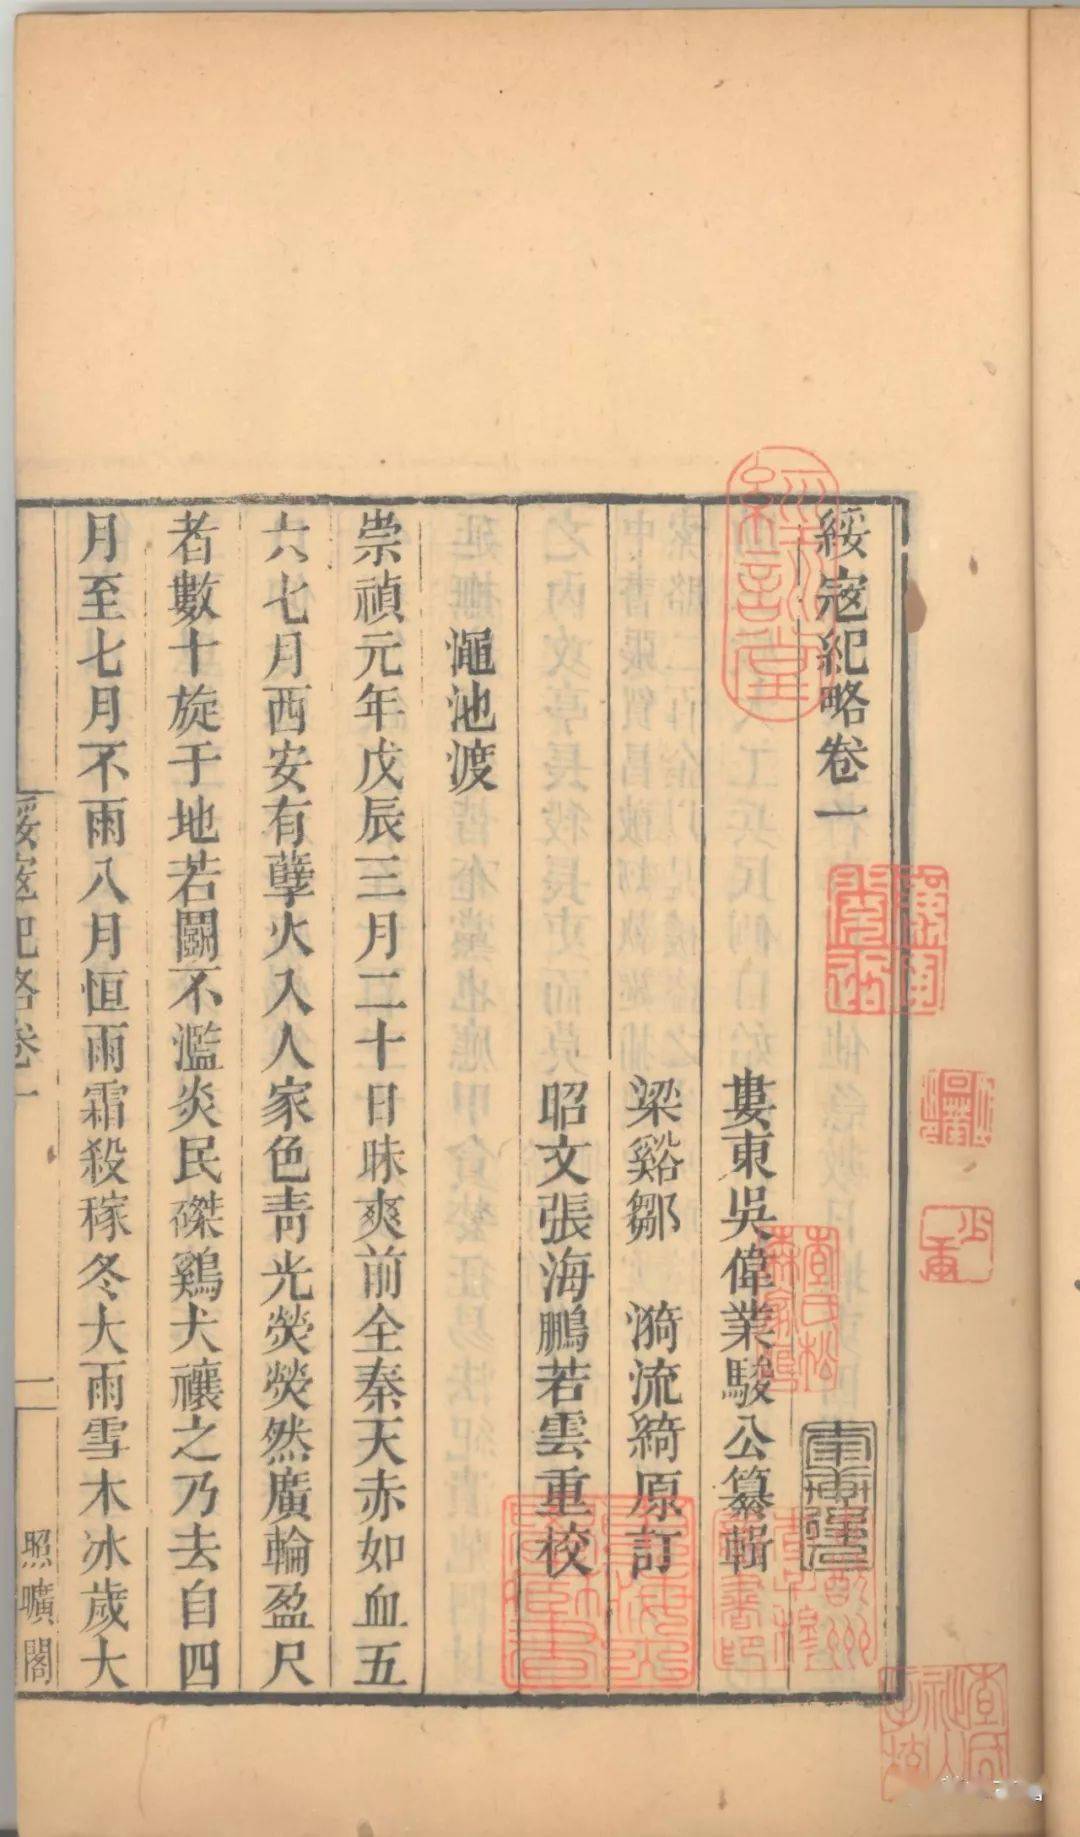 綏寇紀略卷一
婁東吳偉業駿公纂輯
梁谿鄒　漪流綺原訂
昭文張海鵬若雲重校
澠池渡
崇禎元年戊辰三月二十日昧爽前全秦天赤如血五
六七月西安有孽火入人家色青光熒熒然廣輪盈尺
者數十旋于地若鬭不濫炎民磔鷄犬禳之乃去自四
月至七月不雨八月恒雨霜殺稼冬大雨雪木冰歲大
綏寇紀略卷一
一
照曠閣